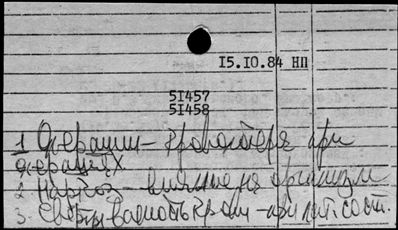 15.10.84 НП
51457
51458
1 Операции - кровопотеря при
операциях
2. Наркоз - влияние на организм
3. Свертываемость крови - при пат. сост.